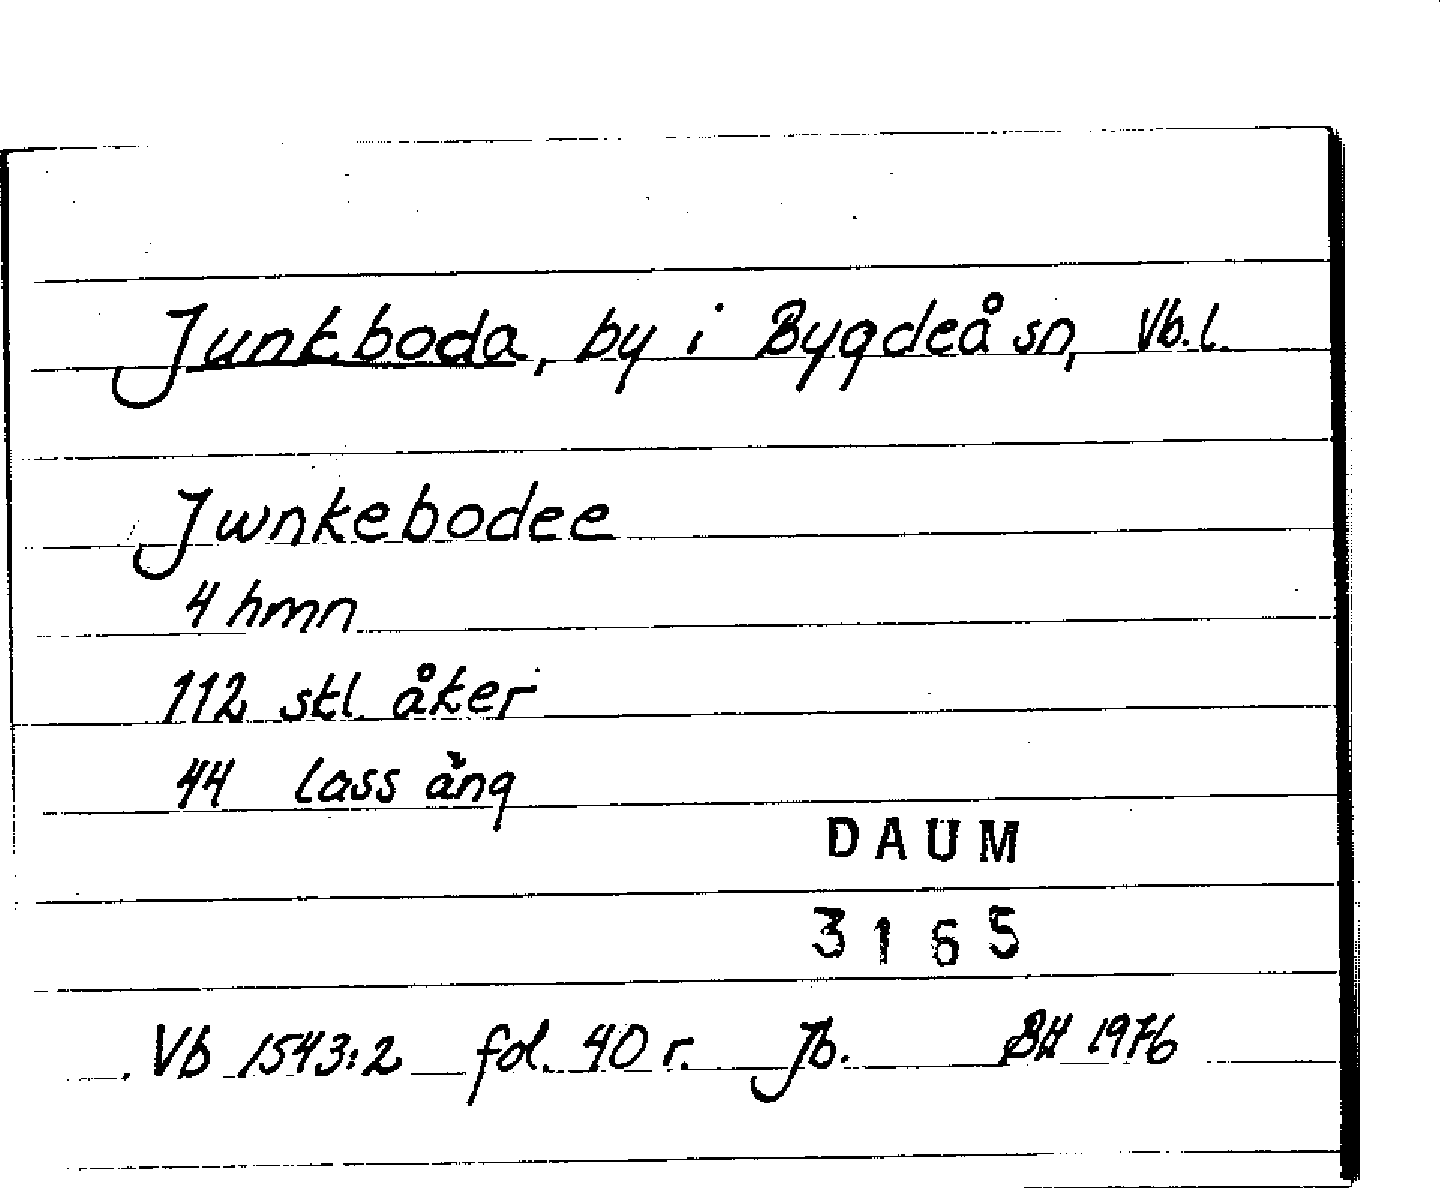 Junkboda, by i Bygdeå sn, Vb.l.
Jwnkebodee
4 hmn
112 skl. åker
44 lass äng
DAUM
3165
Vb 1543:2 fol. 40 r. Jb. BH 1976